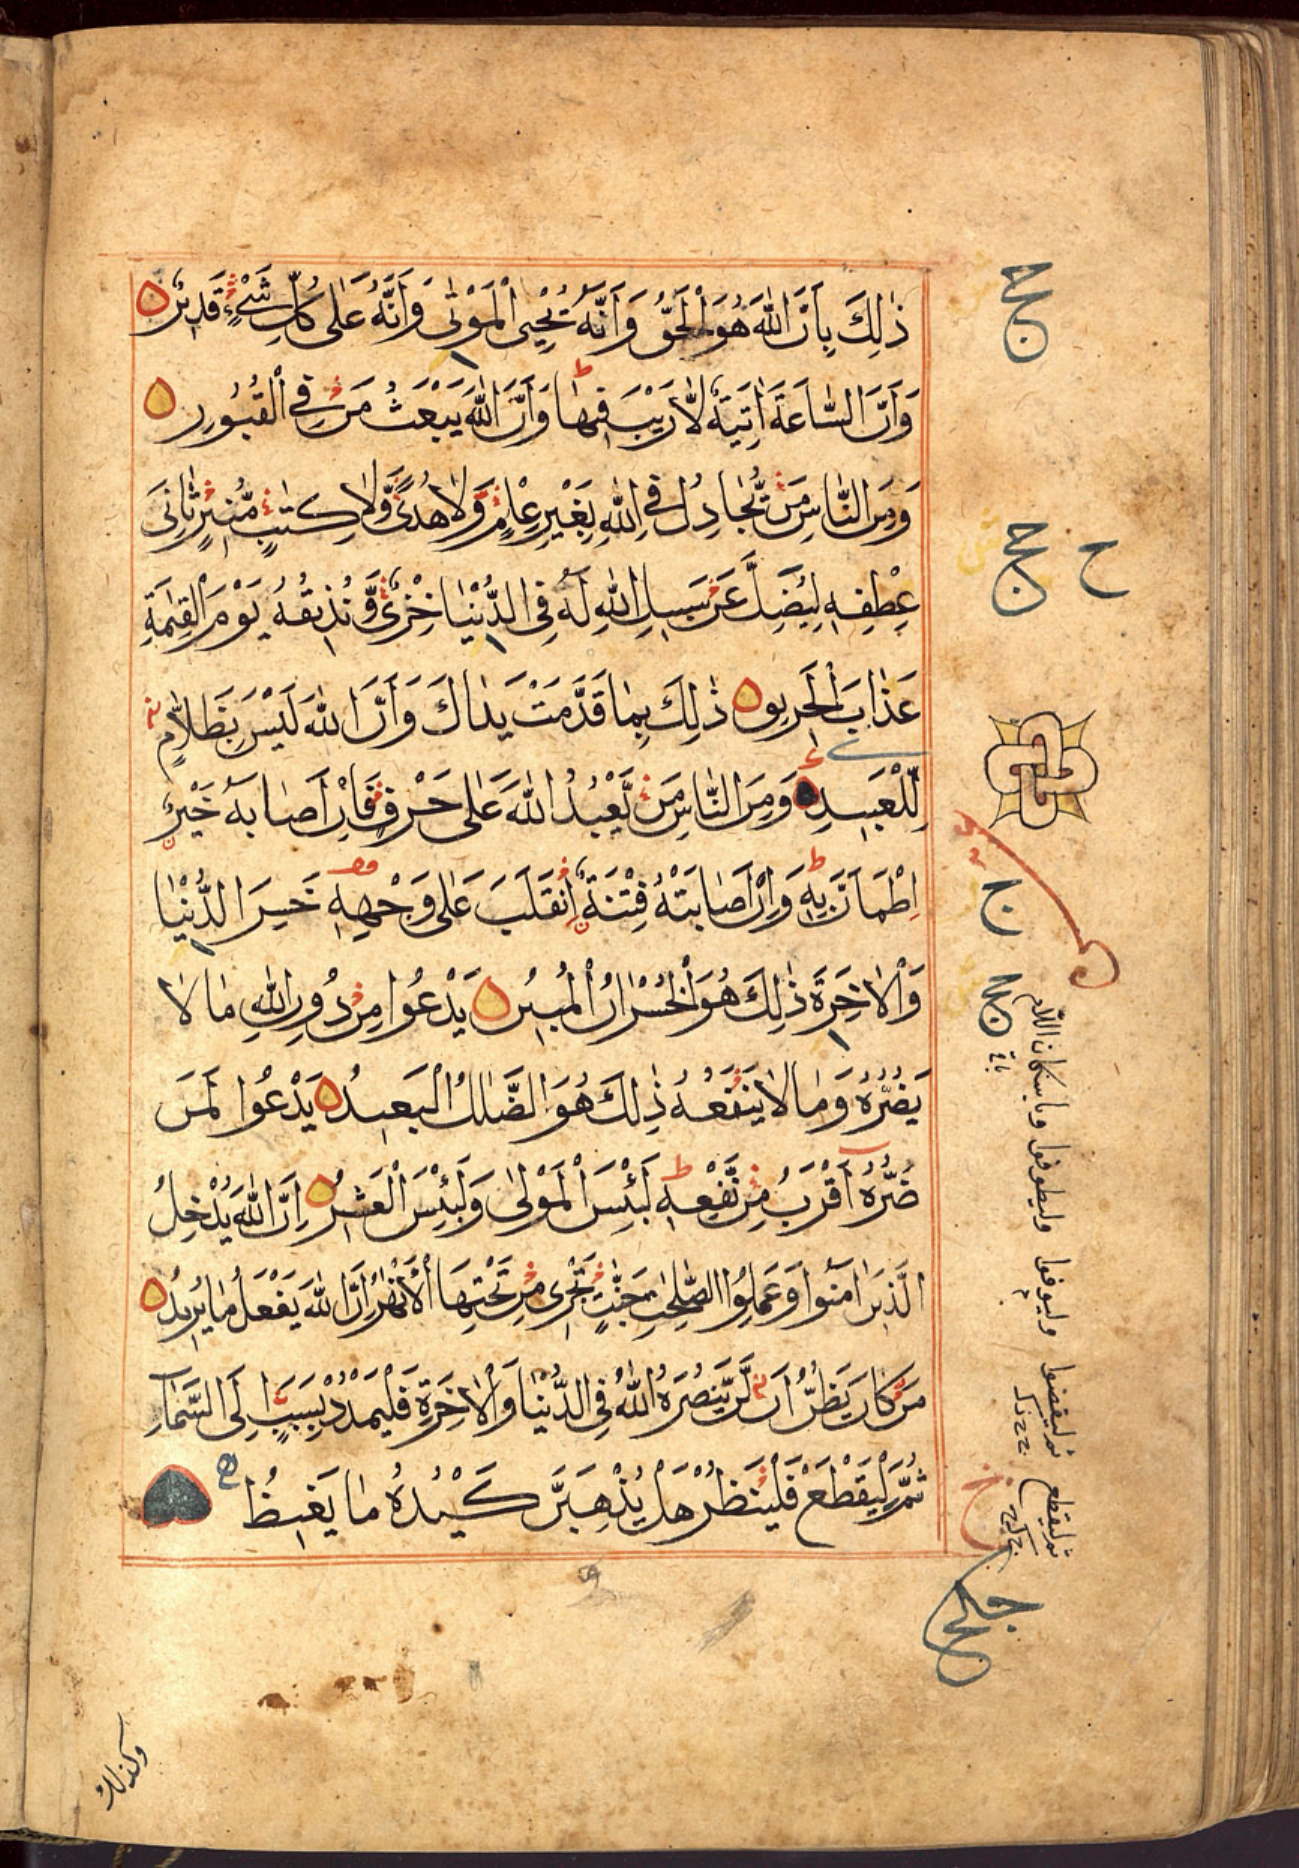 ذٰلِكَ بِاَنَّ اللّٰهَ هُوَ الْحَقُّ وَاَنَّهٗ يُحْيِى الْمَوْتٰى وَاَنَّهٗ عَلٰى كُلِّ شَىْءٍ قَدِيْرٌ
وَاَنَّ السَّاعَةَ اٰتِيَةٌ لَّا رَيْبَ فِيْهَا وَاَنَّ اللّٰهَ يَبْعَثُ مَنْ فِى الْقُبُوْرِ
وَمِنَ النَّاسِ مَنْ يُّجَادِلُ فِى اللّٰهِ بِغَيْرِ عِلْمٍ وَّلَا هُدًى وَّلَا كِتٰبٍ مُّنِيْرٍ ثَانِىَ
عِطْفِهٖ لِيُضِلَّ عَنْ سَبِيْلِ اللّٰهِ لَهٗ فِى الدُّنْيَا خِزْىٌ وَّنُذِيْقُهٗ يَوْمَ الْقِيٰمَةِ
عَذَابَ الْحَرِيْقِ ذٰلِكَ بِمَا قَدَّمَتْ يَدَاكَ وَاَنَّ اللّٰهَ لَيْسَ بِظَلَّامٍ
لِّلْعَبِيْدِ وَمِنَ النَّاسِ مَنْ يَّعْبُدُ اللّٰهَ عَلٰى حَرْفٍ فَاِنْ اَصَابَهٗ خَيْرُ
اِطْمَاَنَّ بِهٖ وَاِنْ اَصَابَتْهُ فِتْنَةٌ اِنْقَلَبَ عَلٰى وَجْهِهٖ خَسِرَ الدُّنْيَا
وَالْاٰخِرَةَ ذٰلِكَ هُوَ الْخُسْرَانُ الْمُبِيْنُ يَدْعُوا مِنْ دُوْنِ اللّٰهِ مَا لَا
يَضُرُّهٗ وَمَا لَا يَنْفَعُهٗ ذٰلِكَ هُوَ الضَّلٰلُ الْبَعِيْدُ يَدْعُوا لَمَنْ
ضَرُّهٗ اَقْرَبُ مِنْ نَّفْعِهٖ لَبِئْسَ الْمَوْلٰى وَلَبِئْسَ الْعَشِيْرُ اِنَّ اللّٰهَ يُدْخِلُ
الَّذِيْنَ اٰمَنُوْا وَعَمِلُوا الصّٰلِحٰتِ جَنّٰتٍ تَجْرِىْ مِنْ تَحْتِهَا الْاَنْهٰرُ اِنَّ اللّٰهَ يَفْعَلُ مَا يُرِيْدُ
مَنْ كَانَ يَظُنُّ اَنْ لَّنْ يَّنْصُرَهُ اللّٰهُ فِى الدُّنْيَا وَالْاٰخِرَةِ فَلْيَمْدُدْ بِسَبَبٍ اِلَى السَّمَاءِ
ثُمَّ لْيَقْطَعْ فَلْيَنْظُرْ هَلْ يُذْهِبَنَّ كَيْدُهٗ مَا يَغِيْظُ
وباسكان اللام وليطوفوا وليوفوا ثم ليقضوا
ثم ليقطع
وكذلك